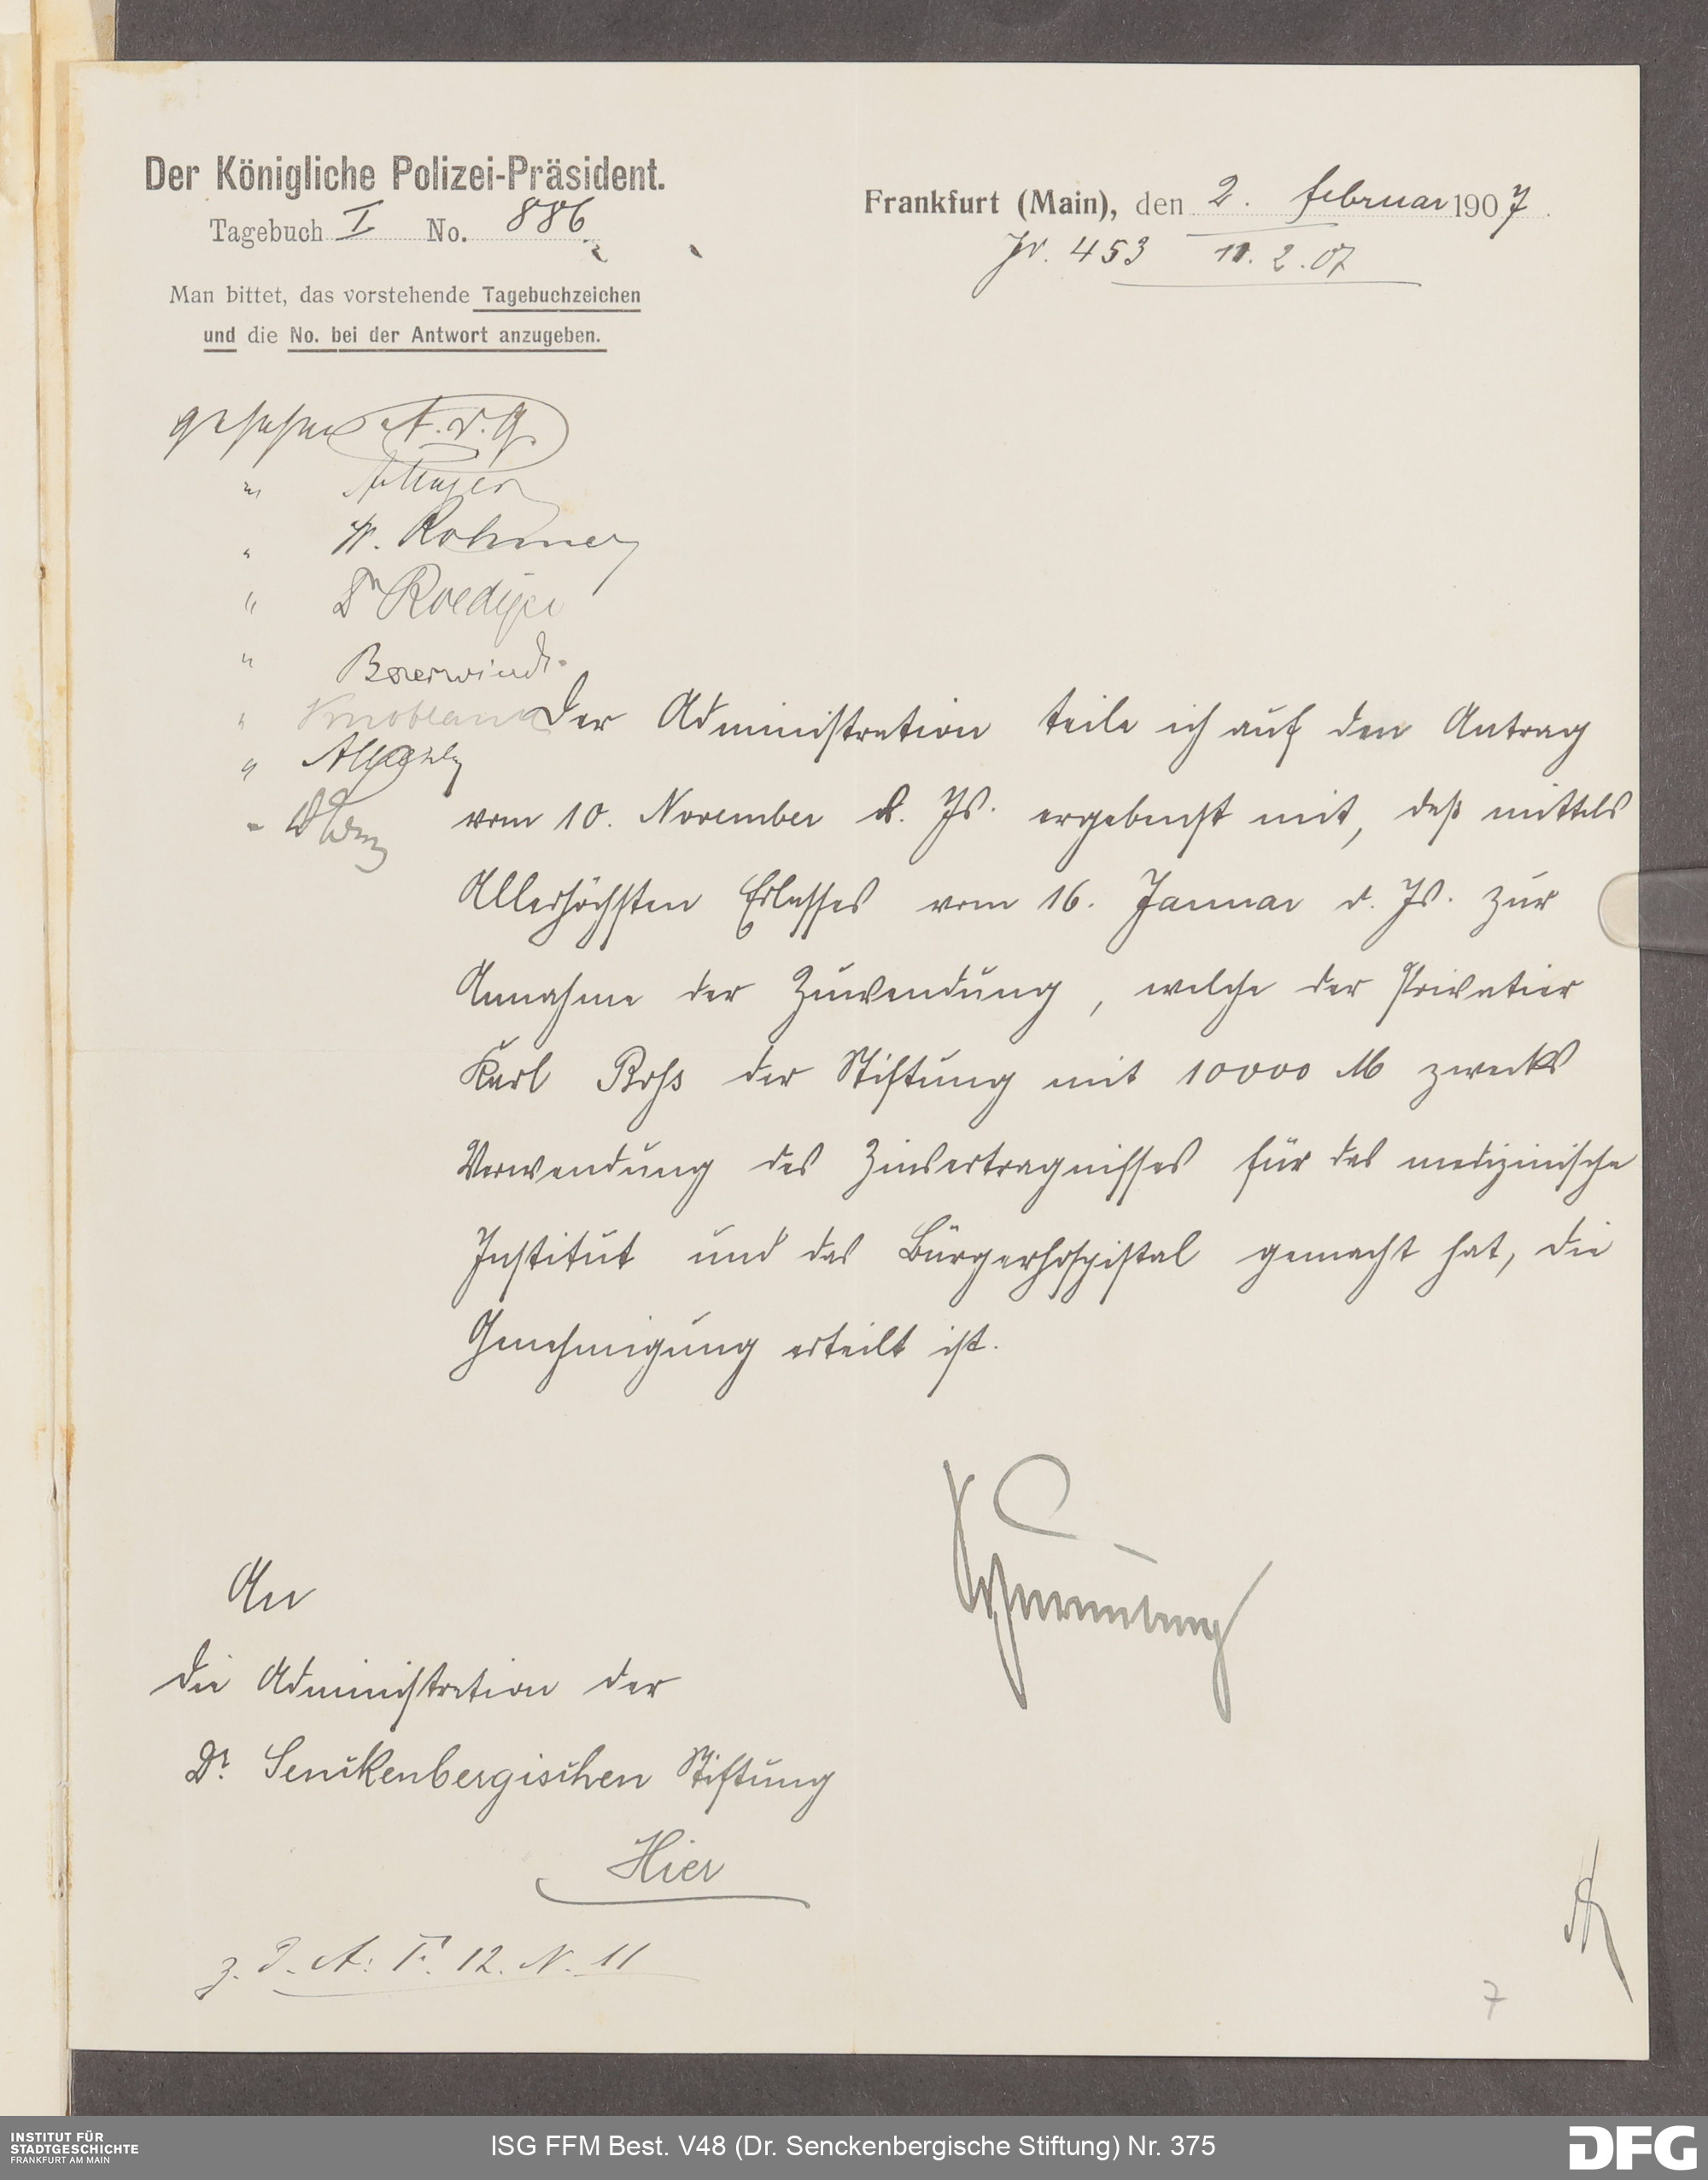 Der Königliche Polizei-Präsident.
Tagebuch I No. 886
Frankfurt (Main), den 2. Februar 1907.
Jr. 453 11.2.07
Man bittet, das vorstehende Tagebuchzeichen
und die No. bei der Antwort anzugeben.
gesehen A. v. G.
" 
" W. Rohmer
" Dr Roediger
" Beverwind
" Knoblauch
"
"
Der Administration teile ich auf den Antrag
vom 10. November v. Js. ergebenst mit, daß mittels
Allerhöchsten Erlasses vom 16. Januar d. Js. zur
Annahme der Zuwendung, welche der Privatier
Karl Roß der Stiftung mit 10000 M zwecks
Verwendung des Zinsertragnisses für das medizinische
Institut und das Bürgerhospital gemacht hat, die
Genehmigung erteilt ist.
An
die Administration der
Dr. Senckenbergischen Stiftung
Hier
z. d. A: F. 12. N. 11
7
INSTITUT FÜR
STADTGESCHICHTE
FRANKFURT AM MAIN
ISG FFM Best. V48 (Dr. Senckenbergische Stiftung) Nr. 375
DFG